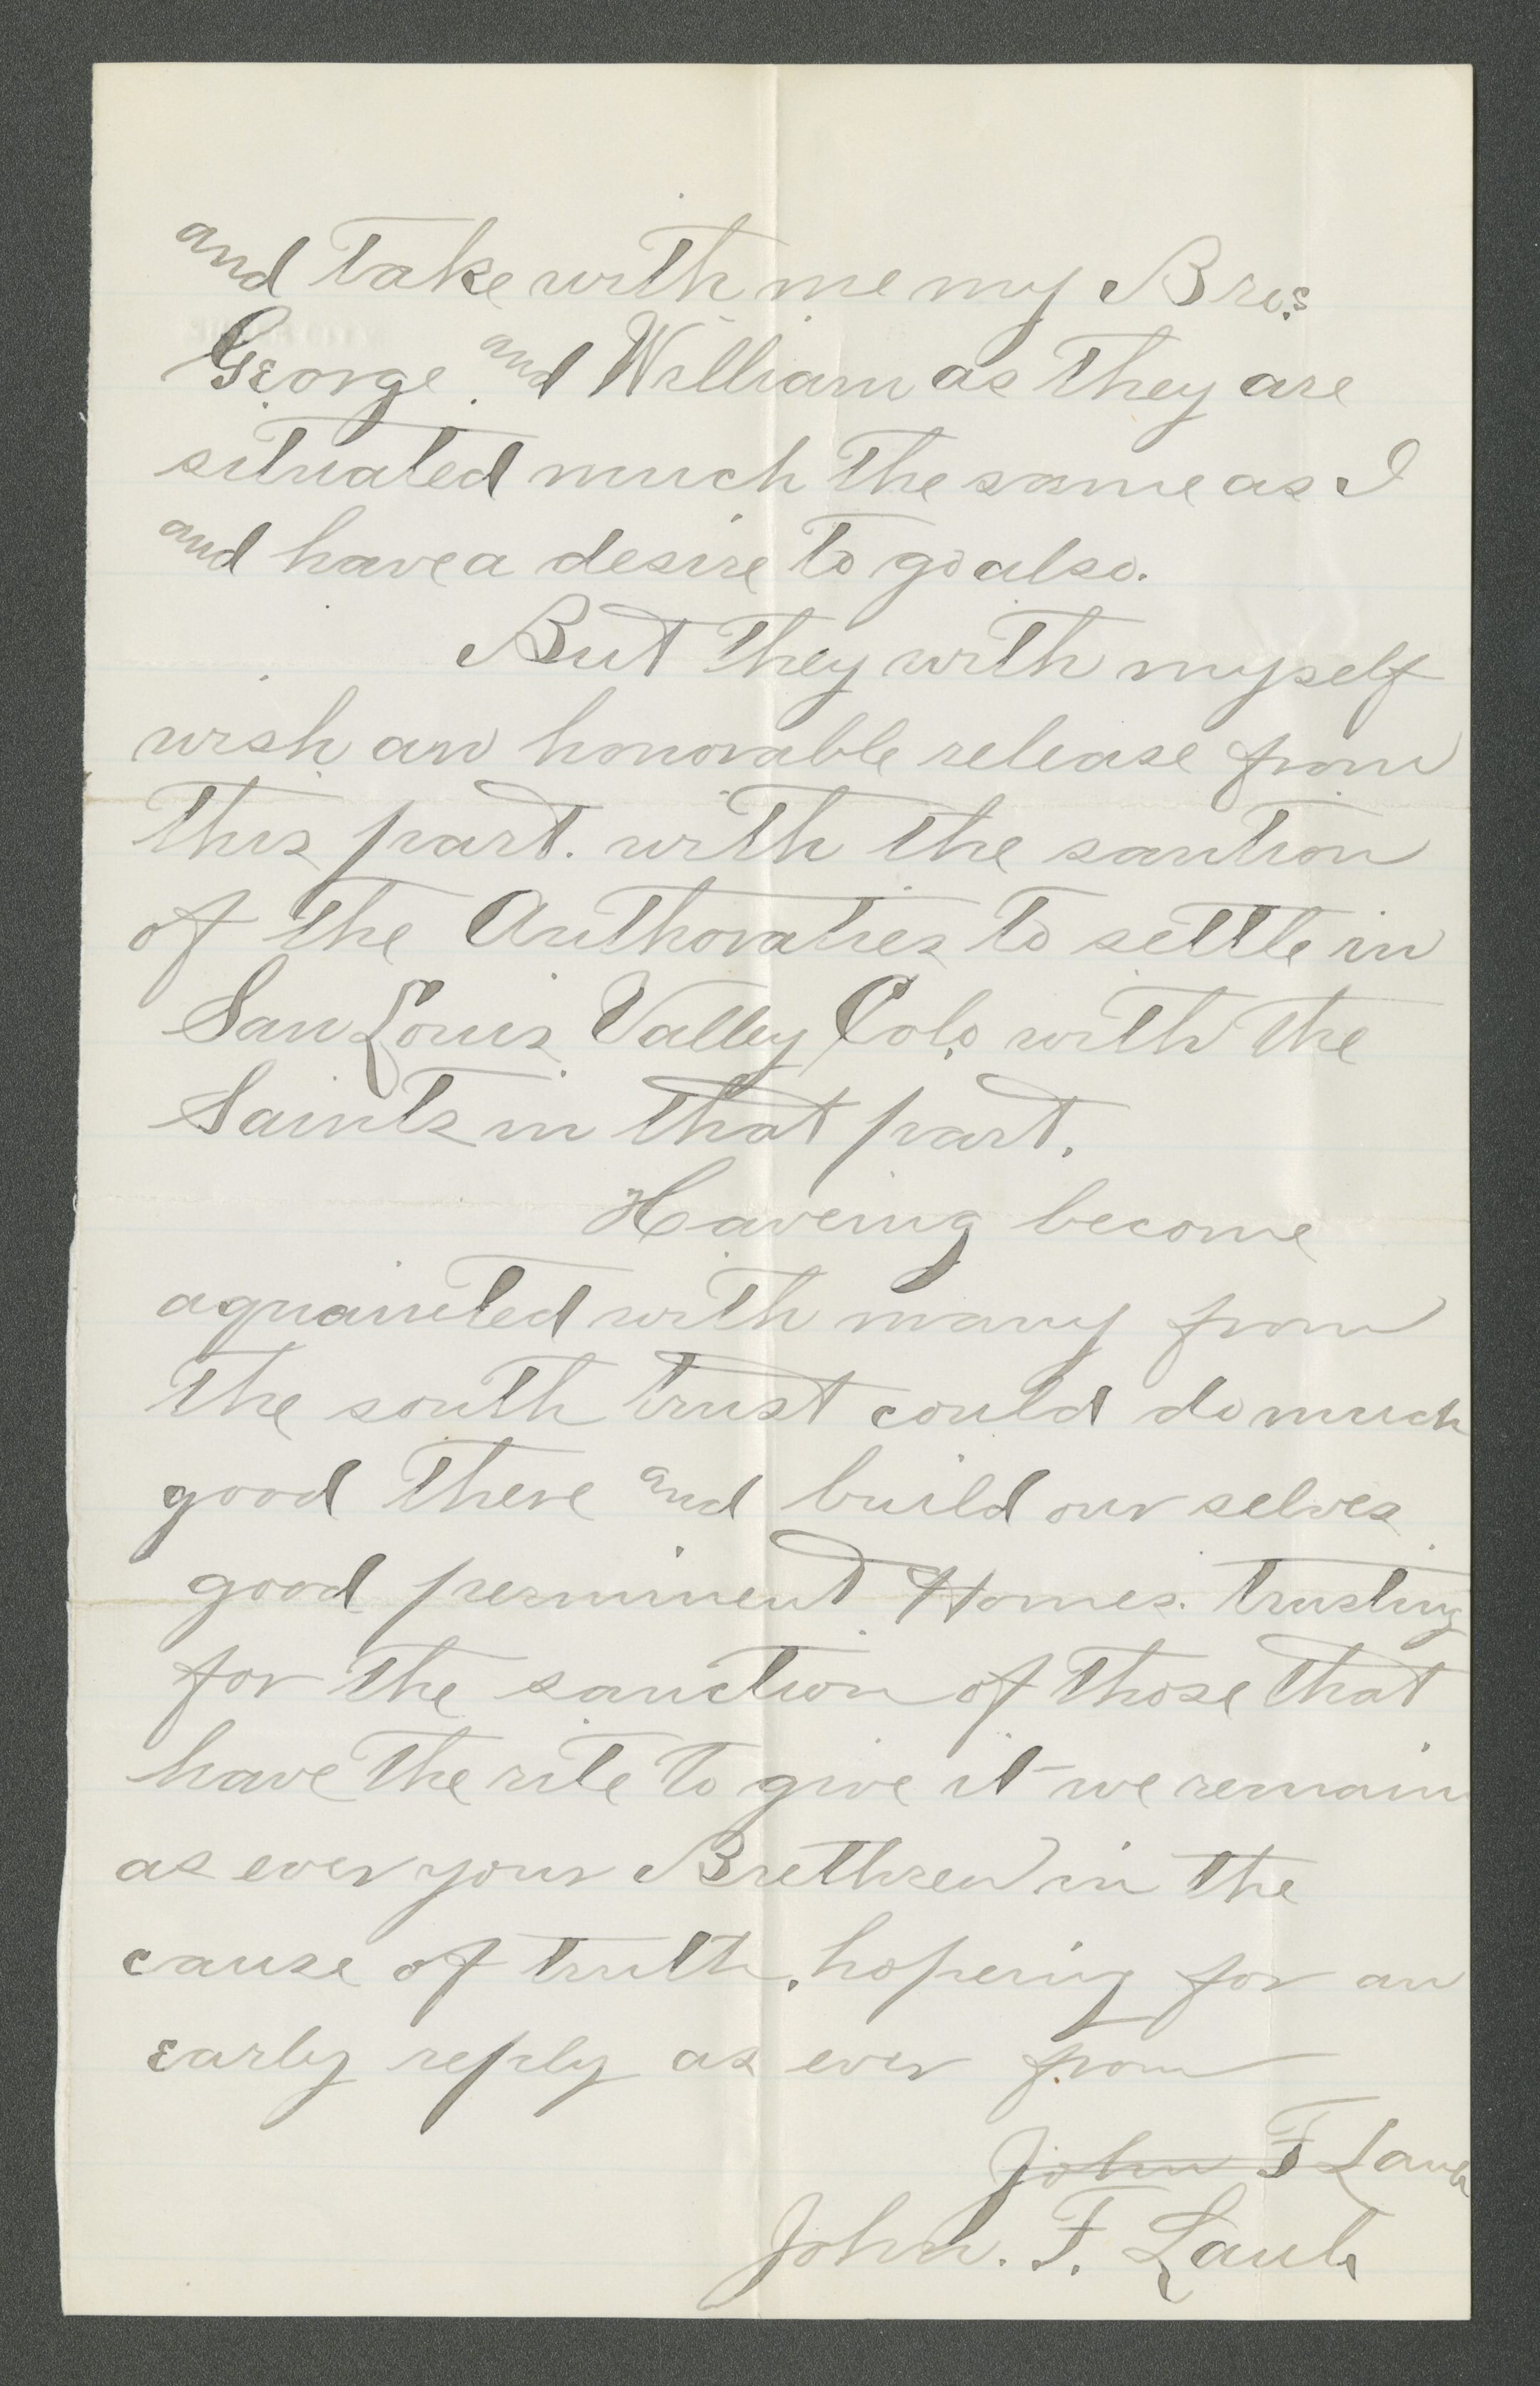 and take with me my Bro.s
George and William as they are
situated much the same as I
and have a desire to go also.
But they with myself
wish an honorable release from
this part. with the santion
of the Authoraties to settle in
San Louis Valley Colo with the
Saints in that part.
Haveing become
aquainted with many from
the south trust could do much
good there and build our selves
good perminent Homes. trusting
for the sanction of those that
have the rite to give it we remain
as ever your Brethren in the
cause of truth. hopeing for an
early reply as ever from
John F Laub
John. F. Laub